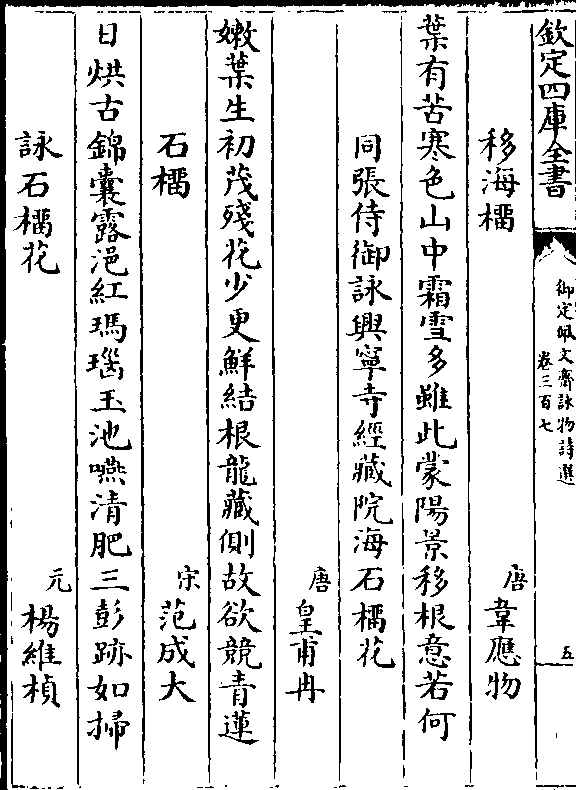 欽定四庫全書
御定佩文齋詠物詩選
卷三百七
五
移海橊 唐 韋應物
葉有苦寒色山中霜雪多雖此蒙陽景移根意若何
同張侍御詠興寧寺經藏院海石橊花
唐 皇甫冉
嫩葉生初茂殘花少更鮮結根龍藏側故欲競青蓮
石橊 宋 范成大
日烘古錦囊露浥紅瑪瑙玉池嚥清肥三彭跡如掃
詠石橊花 元 楊維楨